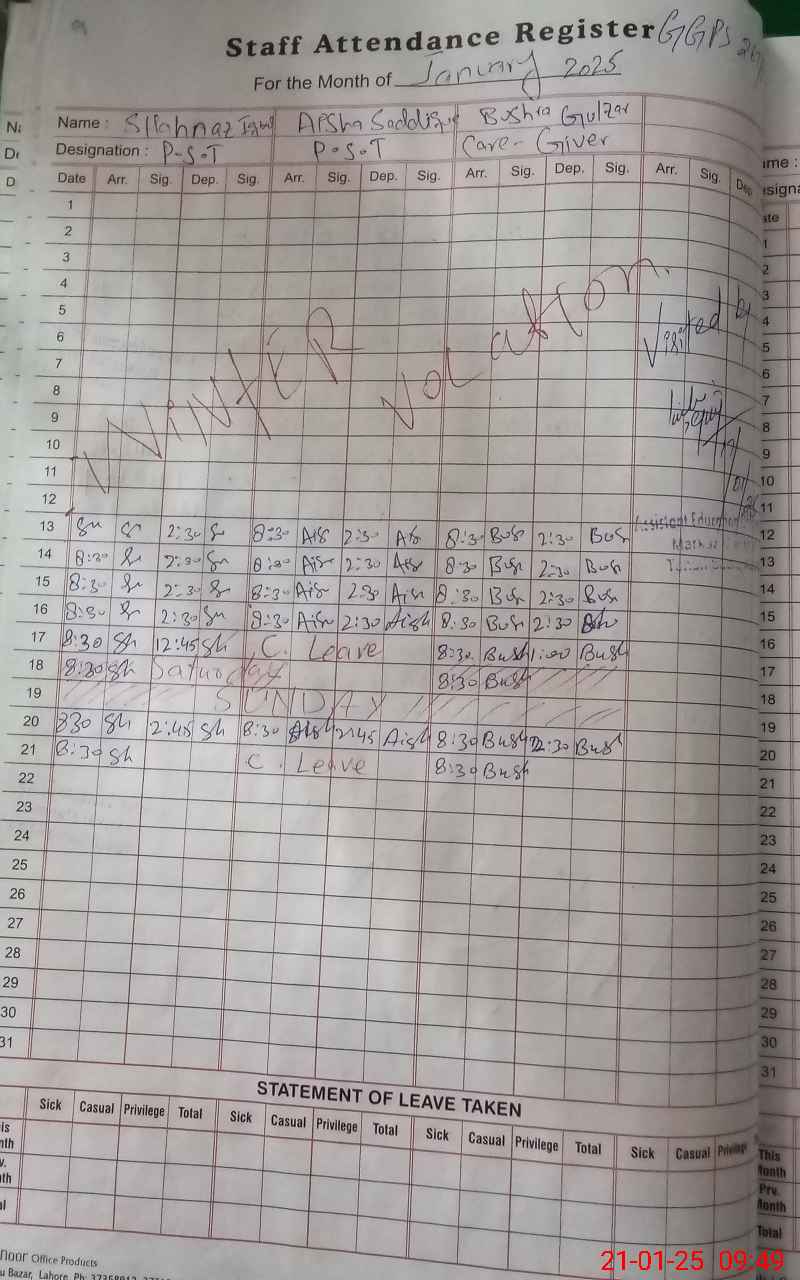 Staff Attendance Register GGPS
For the Month of January 2025
Name : Shahnaz Aisha Saddique Bushra Gulzar
Designation : P-S-T P-S-T Care-Giver
Date Arr. Sig. Dep. Sig. Arr. Sig. Dep. Sig. Arr. Sig. Dep. Sig. Arr. Sig. Dep
1
2
3
4
5
6
7
8
9
10
11
12
WINTER Vacation
Visited by
Assistant Education
13 Sh Sh 2:30 Sh 8:30 Ais 2:30 Ais 8:30 Bus 2:30 Bus
14 8:30 Sh 2:30 Sh 8:30 Ais 2:30 Ais 8:30 Bus 2:30 Bus
15 8:30 Sh 2:30 Sh 8:30 Ais 2:30 Ais 8:30 Bus 2:30 Bus
16 8:30 Sh 2:30 Sh 8:30 Ais 2:30 Aish 8:30 Bus 2:30 Bus
17 8:30 Sh 12:45 Sh C. Leave 8:30 Bush 1:00 Bush
18 8:30 Sh Saturday 8:30 Bush
19 SUNDAY
20 830 Sh 2:45 Sh 8:30 Aish 2:45 Aish 8:30 Bush 2:30 Bush
21 8:30 Sh C. Leave 8:30 Bush
22
23
24
25
26
27
28
29
30
31
STATEMENT OF LEAVE TAKEN
Sick Casual Privilege Total Sick Casual Privilege Total Sick Casual Privilege Total Sick Casual Privilege
This Month
Prv. Month
Total
Office Products
Bazar, Lahore. Ph:
21-01-25 09:49